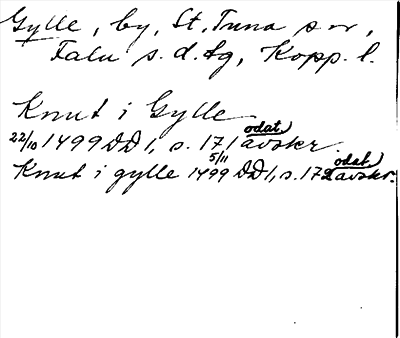 Gylle, by, St. Tuna sn,
Falu s.d.tg, Kopp. l.
Knut i Gylle
22/10 1499 DD 1, s. 171 odat. avskr.
Knut i gylle 5/11 1499 DD 1, s. 172 odat. avskr.